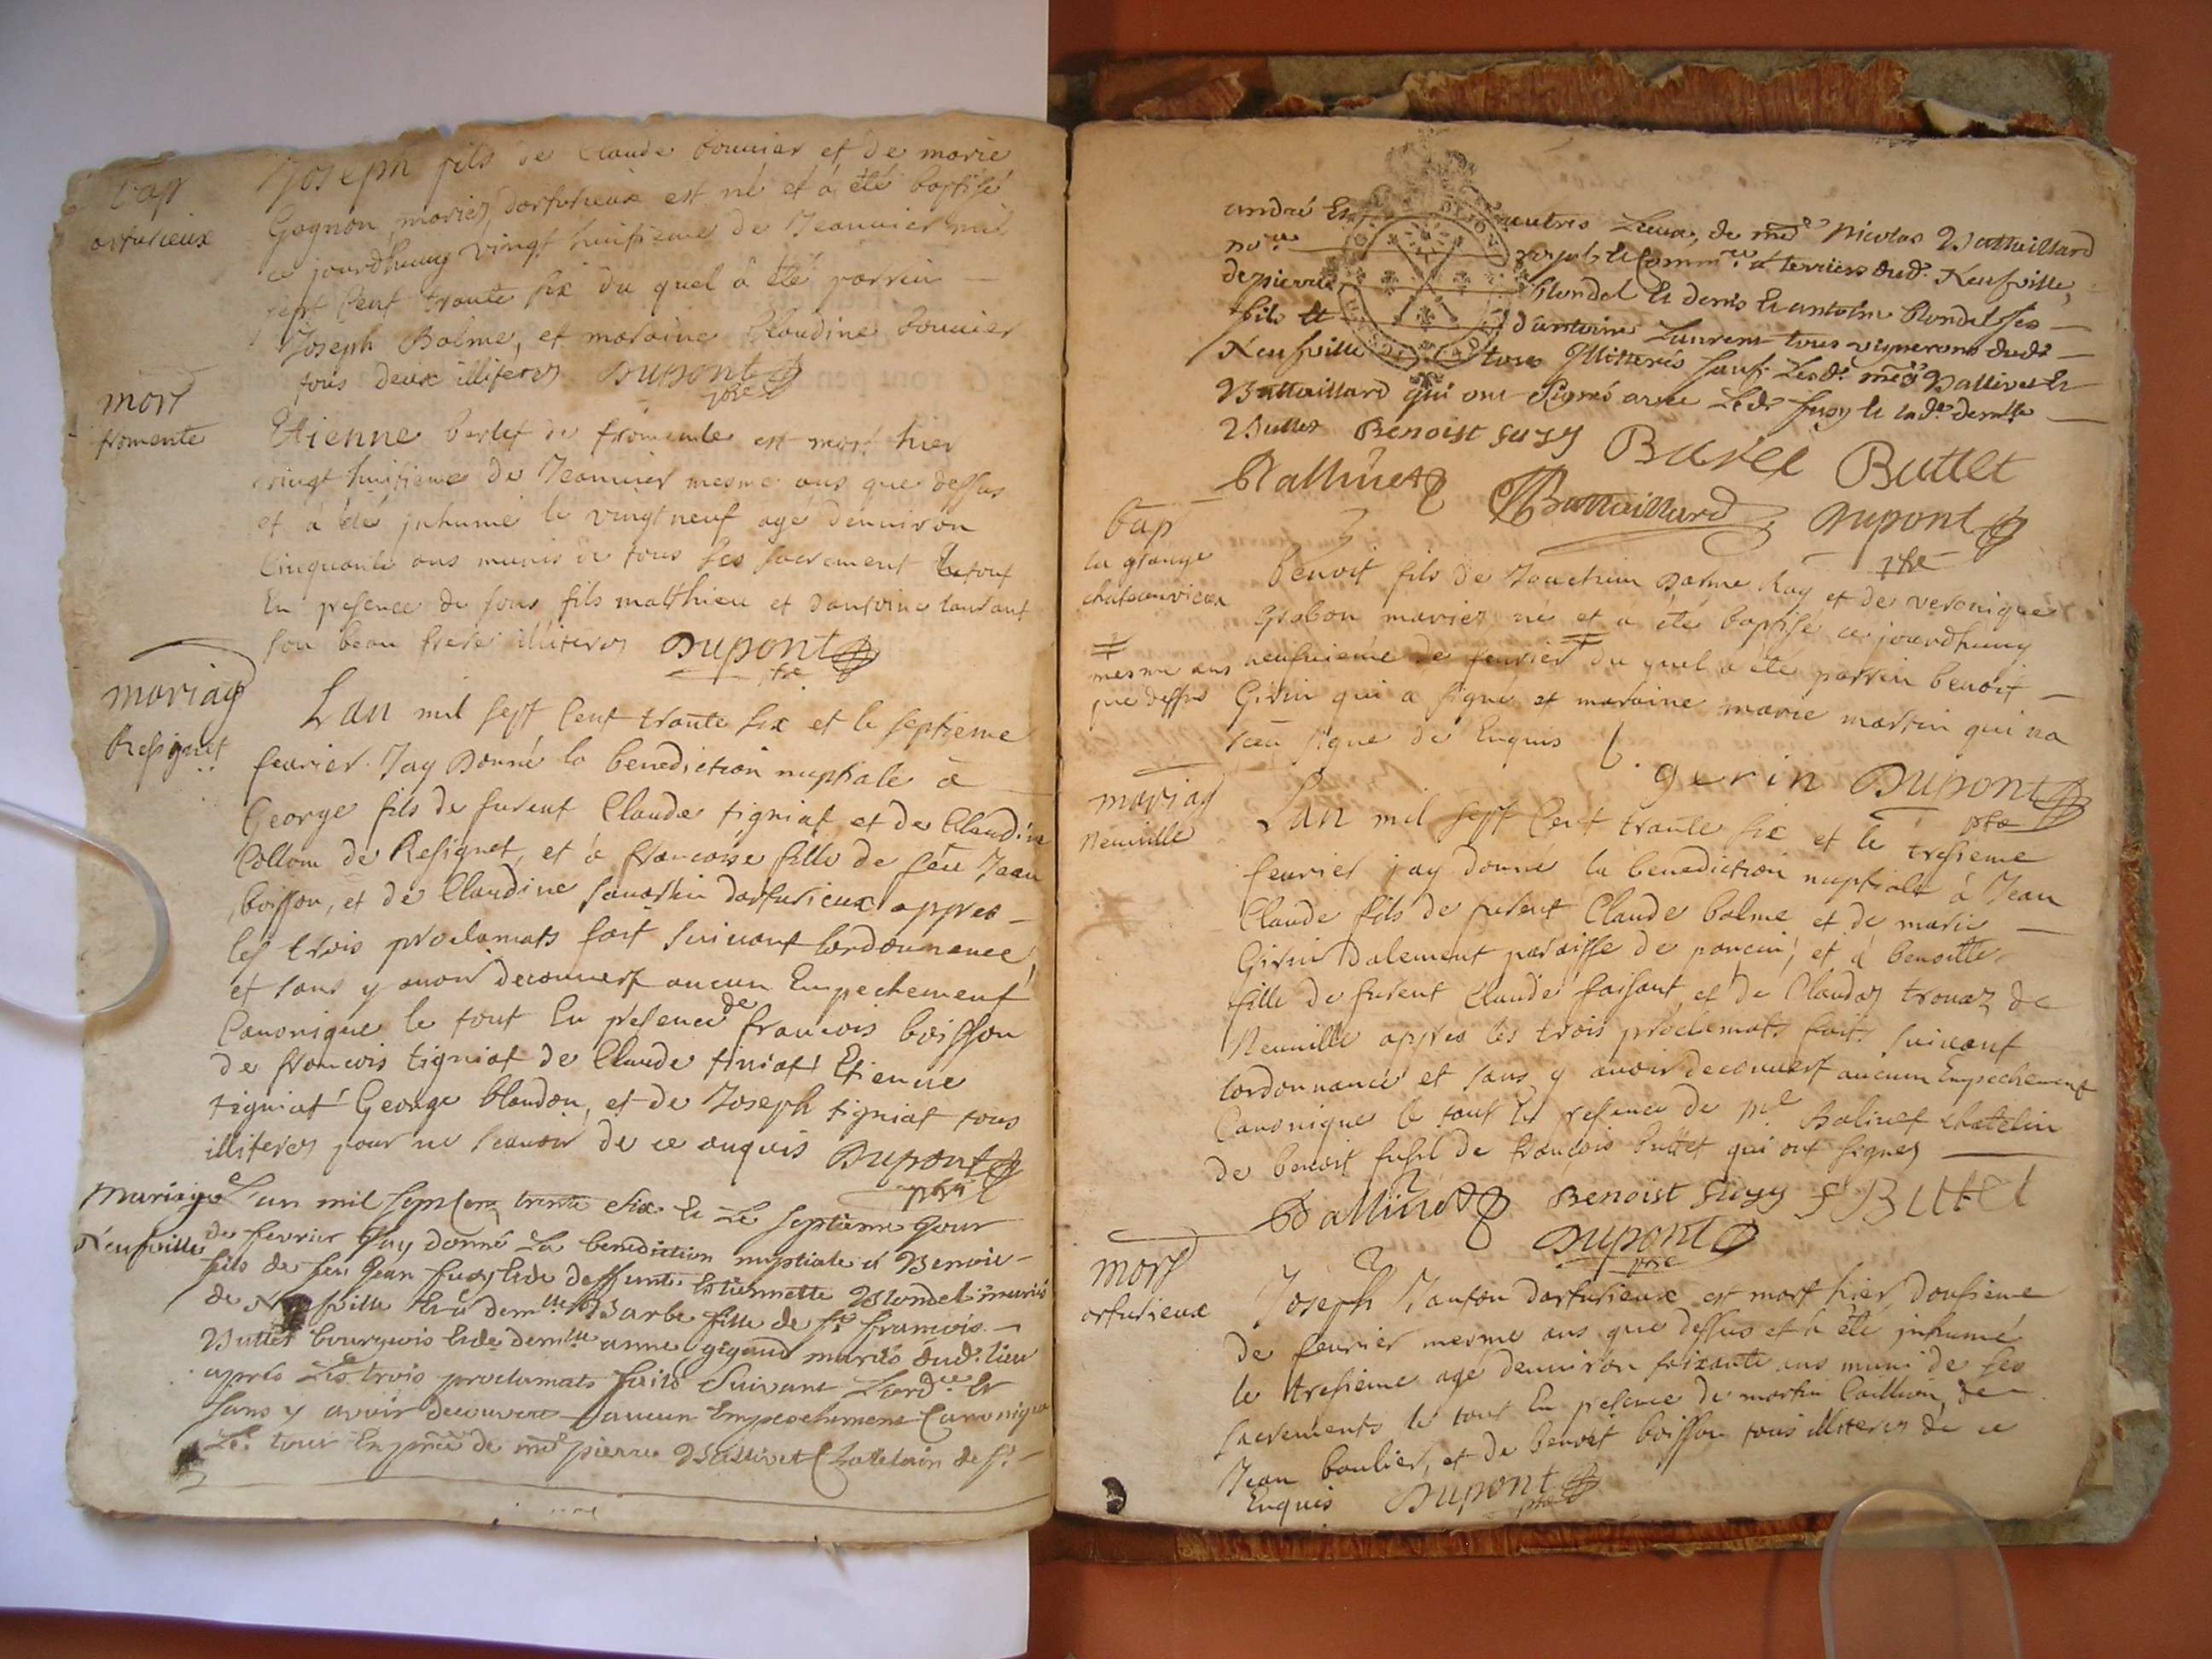 bap
orfurieux
Joseph fils de Claude bouuier et de marie
Gognon mariez dorfurieux est né et á été baptisé
ce jourdhuuy vingt huitieme de Jeanuier mil
sept Cent trante six du quel â été parrin —
Joseph Balme, et maraine Claudine bouuier
tous deux illiterez Dupont
ptre
mort
fromente
Etienne berlet de fromente est mort hier
vingt huitieme de Jeanuier mesme ans que dessus
et à été jnhumé le vingt neuf agé denuiron
Cinquante ans munis de tous ses sacrement le tout
En presence de sons fils matthieu et dantoine laurant
son beau frere illiterez Dupont
ptre
mariag
Resignet
Lan mil sept Cent trante six et le septieme
feurier Jay Donné la benediction nuptiale â
George fils de furent Claude tigniat et de Claudine
Collom de Resignet, et á francoise fille de feu Jean
boisson, et de Claudine sauarin dorfurieux appres —
les trois proclamats fait suiuant lordonnance,
et sans y auoir decouuert aucun Empechement
Canonique le tout En presence de francois boisson
de francois tigniat de Claude tiniat Etienne
tigniat George blandon, et de Joseph tigniat tous
illiterez pour ne scauoir de ce enquis Dupont
ptre
Mariage
Neufville
L'an mil sept Cent trente Six et Le septieme Jour
de fevrier Jay donné La benediction nuptiale à Benoit
fils de feu Jean fusy et de deffunte Estiennette Blondel mariés
de Neufville et à demlle Barbe fille de sr francois —
Buttet bourgeois et de demlle anne gigand mariés dud. lieu
aprés Les trois proclamats faits Suivant Lordce Et
Sans y avoir decouvert aucun Empeschement Canonique
Le tout En pnce de me pierre Ballivet Chattelain de st —
andré Es autres Lieux, de me Nicolas Battaillard
nore royal et Commre à terriers dud. Neufville,
de pierre blondel et denis et antoine blondel ses —
fils et d'antoine Laurent tous vignerons dudt —
Neufville tous Illitterés sauf Lesds mes Ballivet Et
Battaillard qui ont Signés avec Ledt fusy et lade demlle —
Buttet Benoist fusy Barbe Buttet
Ballivet Battaillard Dupont
ptre
bap
la grange
chateauvieux
Benoit fils de Joachim Darme Ray et de veronique
Grobon mariez né et a été baptisé ce jourdhuuy
neufuieme de feurier du quel a été parrin benoit —
mesme ans
que dessus
Girin qui a signé et maraine marie martin qui na
sceu signe de Enquis
gerin Dupont
ptre
mariag
Neuuille
Lan mil sept Cent trante six et le tresieme
feurier jay donné la benediction nuptiale à Jean
Claude fils de furent Claude balme et de marie —
Girin Dalement paroisse de poncin, et á benoitte
fille de furent Claude faisant, et de Claudaz trouaz de
Neuuille appres les trois proclemats faits suiuant
lordonnance et sans y auoir decouuert aucun Empechement
Canonique le tout En presence de me Baliuet Chatelin
de benoit fusil de françois buttet qui ont signez
Ballivet Benoist fusy f Butet
Dupont
ptre
mort
orfurieux
Joseph Janton dorfurieux est mort hier dousieme
de feurier mesme ans que dessus et á été jnhumé
le tresieme agé denuiron soixante ans muni de ses
sacrements le tout En presence de martin Caillion, de
Jean boulier, et de benoit boisson tous illiterez de ce
Enquis Dupont
ptre